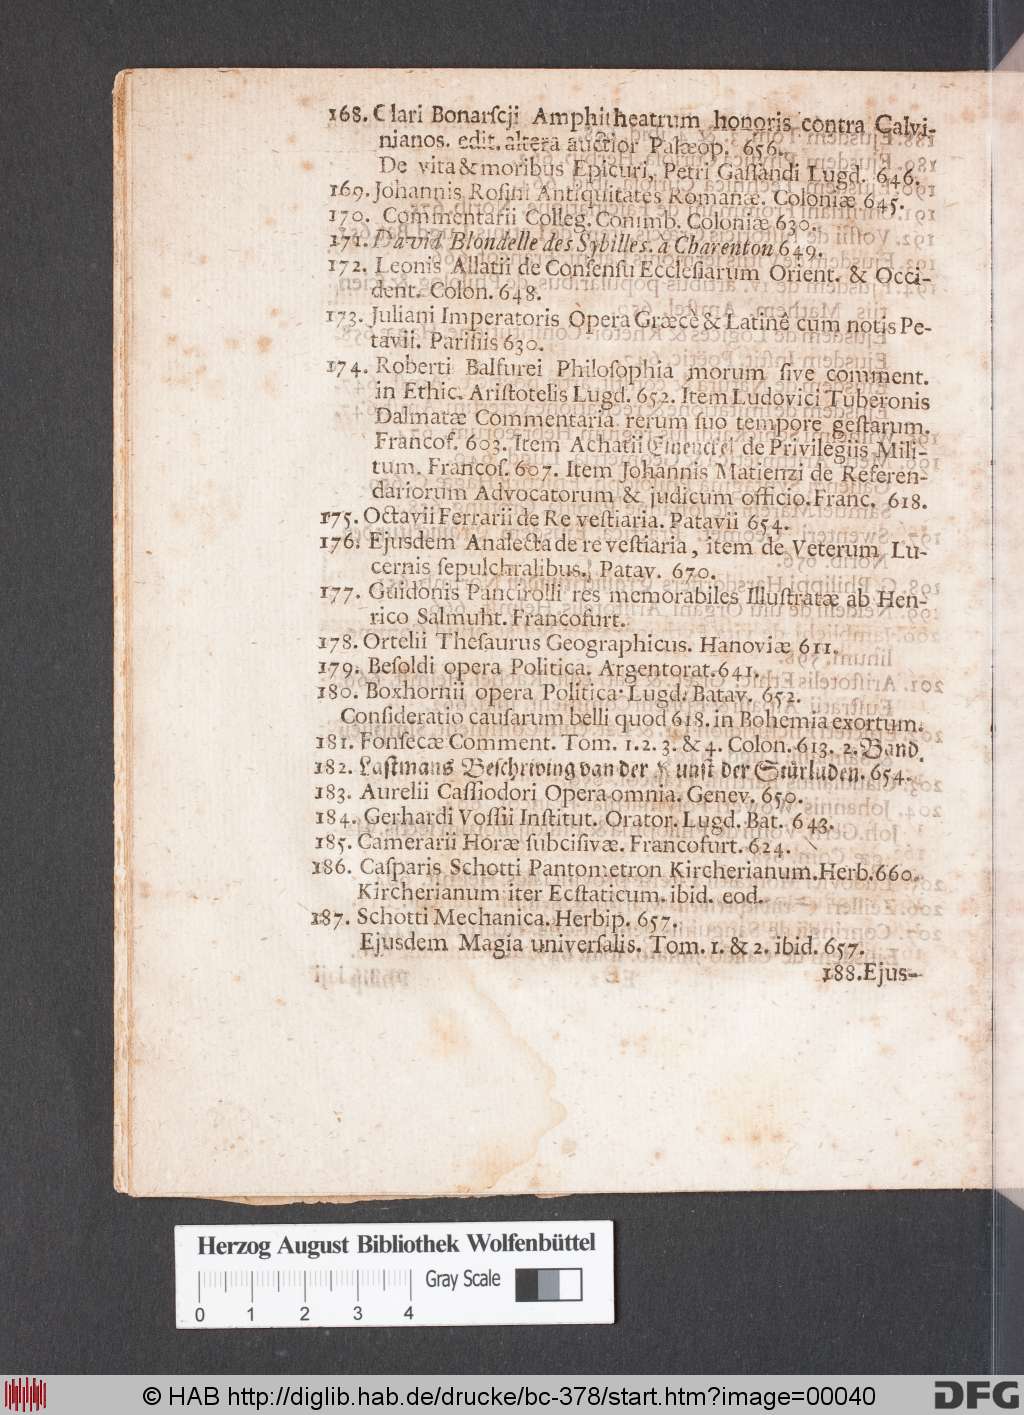 168. Clari Bonarscji Amphitheatrum honoris contra Calvi-
nianos. edit. altera auctior Palæop. 656.
De vita & moribus Epicuri, Petri Gassandi Lugd. 646.
169. Johannis Rosini Antiquitates Romanæ. Coloniæ 645.
170. Commentarii Colleg. Conimb. Coloniæ 630.
171. David Blondelle des Sybilles. a Charenton 649.
172. Leonis Allatii de Consensu Ecclesiarum Orient. & Occi-
dent. Colon. 648.
173. Juliani Imperatoris Opera Græcè & Latinè cum notis Pe-
tavii. Parisiis 630.
174. Roberti Balfurei Philosophia morum sive comment.
in Ethic. Aristotelis Lugd. 652. Item Ludovici Tuberonis
Dalmatæ Commentaria rerum suo tempore gestarum.
Francof. 603. Item Achatii de Privilegiis Mili-
tum. Francof. 607. Item Johannis Matienzi de Referen-
dariorum Advocatorum & judicum officio. Franc. 618.
175. Octavii Ferrarii de Re vestiaria. Patavii 654.
176. Ejusdem Analecta de re vestiaria, item de Veterum Lu-
cernis sepulchralibus. Patav. 670.
177. Guidonis Pancirolli res memorabiles Illustratæ ab Hen-
rico Salmuht. Francofurt.
178. Ortelii Thesaurus Geographicus. Hanoviæ 611.
179. Besoldi opera Politica. Argentorat. 641.
180. Boxhornii opera Politica. Lugd. Batav. 652.
Consideratio causarum belli quod 618. in Bohemia exortum.
181. Fonsecæ Comment. Tom. 1. 2. 3. & 4. Colon. 613. 2. Band.
182. Lastmans Beschriving van der Kunst der Stürluden. 654.
183. Aurelii Cassiodori Opera omnia. Genev. 650.
184. Gerhardi Vossii Institut. Orator. Lugd. Bat. 643.
185. Camerarii Horæ subcisivæ. Francofurt. 624.
186. Casparis Schotti Pantometron Kircherianum. Herb. 660.
Kircherianum iter Ecstaticum. ibid. eod.
187. Schotti Mechanica. Herbip. 657.
Ejusdem Magia universalis. Tom. 1. & 2. ibid. 657.
188. Ejus-
Herzog August Bibliothek Wolfenbüttel
Gray Scale
0 1 2 3 4
© HAB http://diglib.hab.de/drucke/bc-378/start.htm?image=00040
DFG